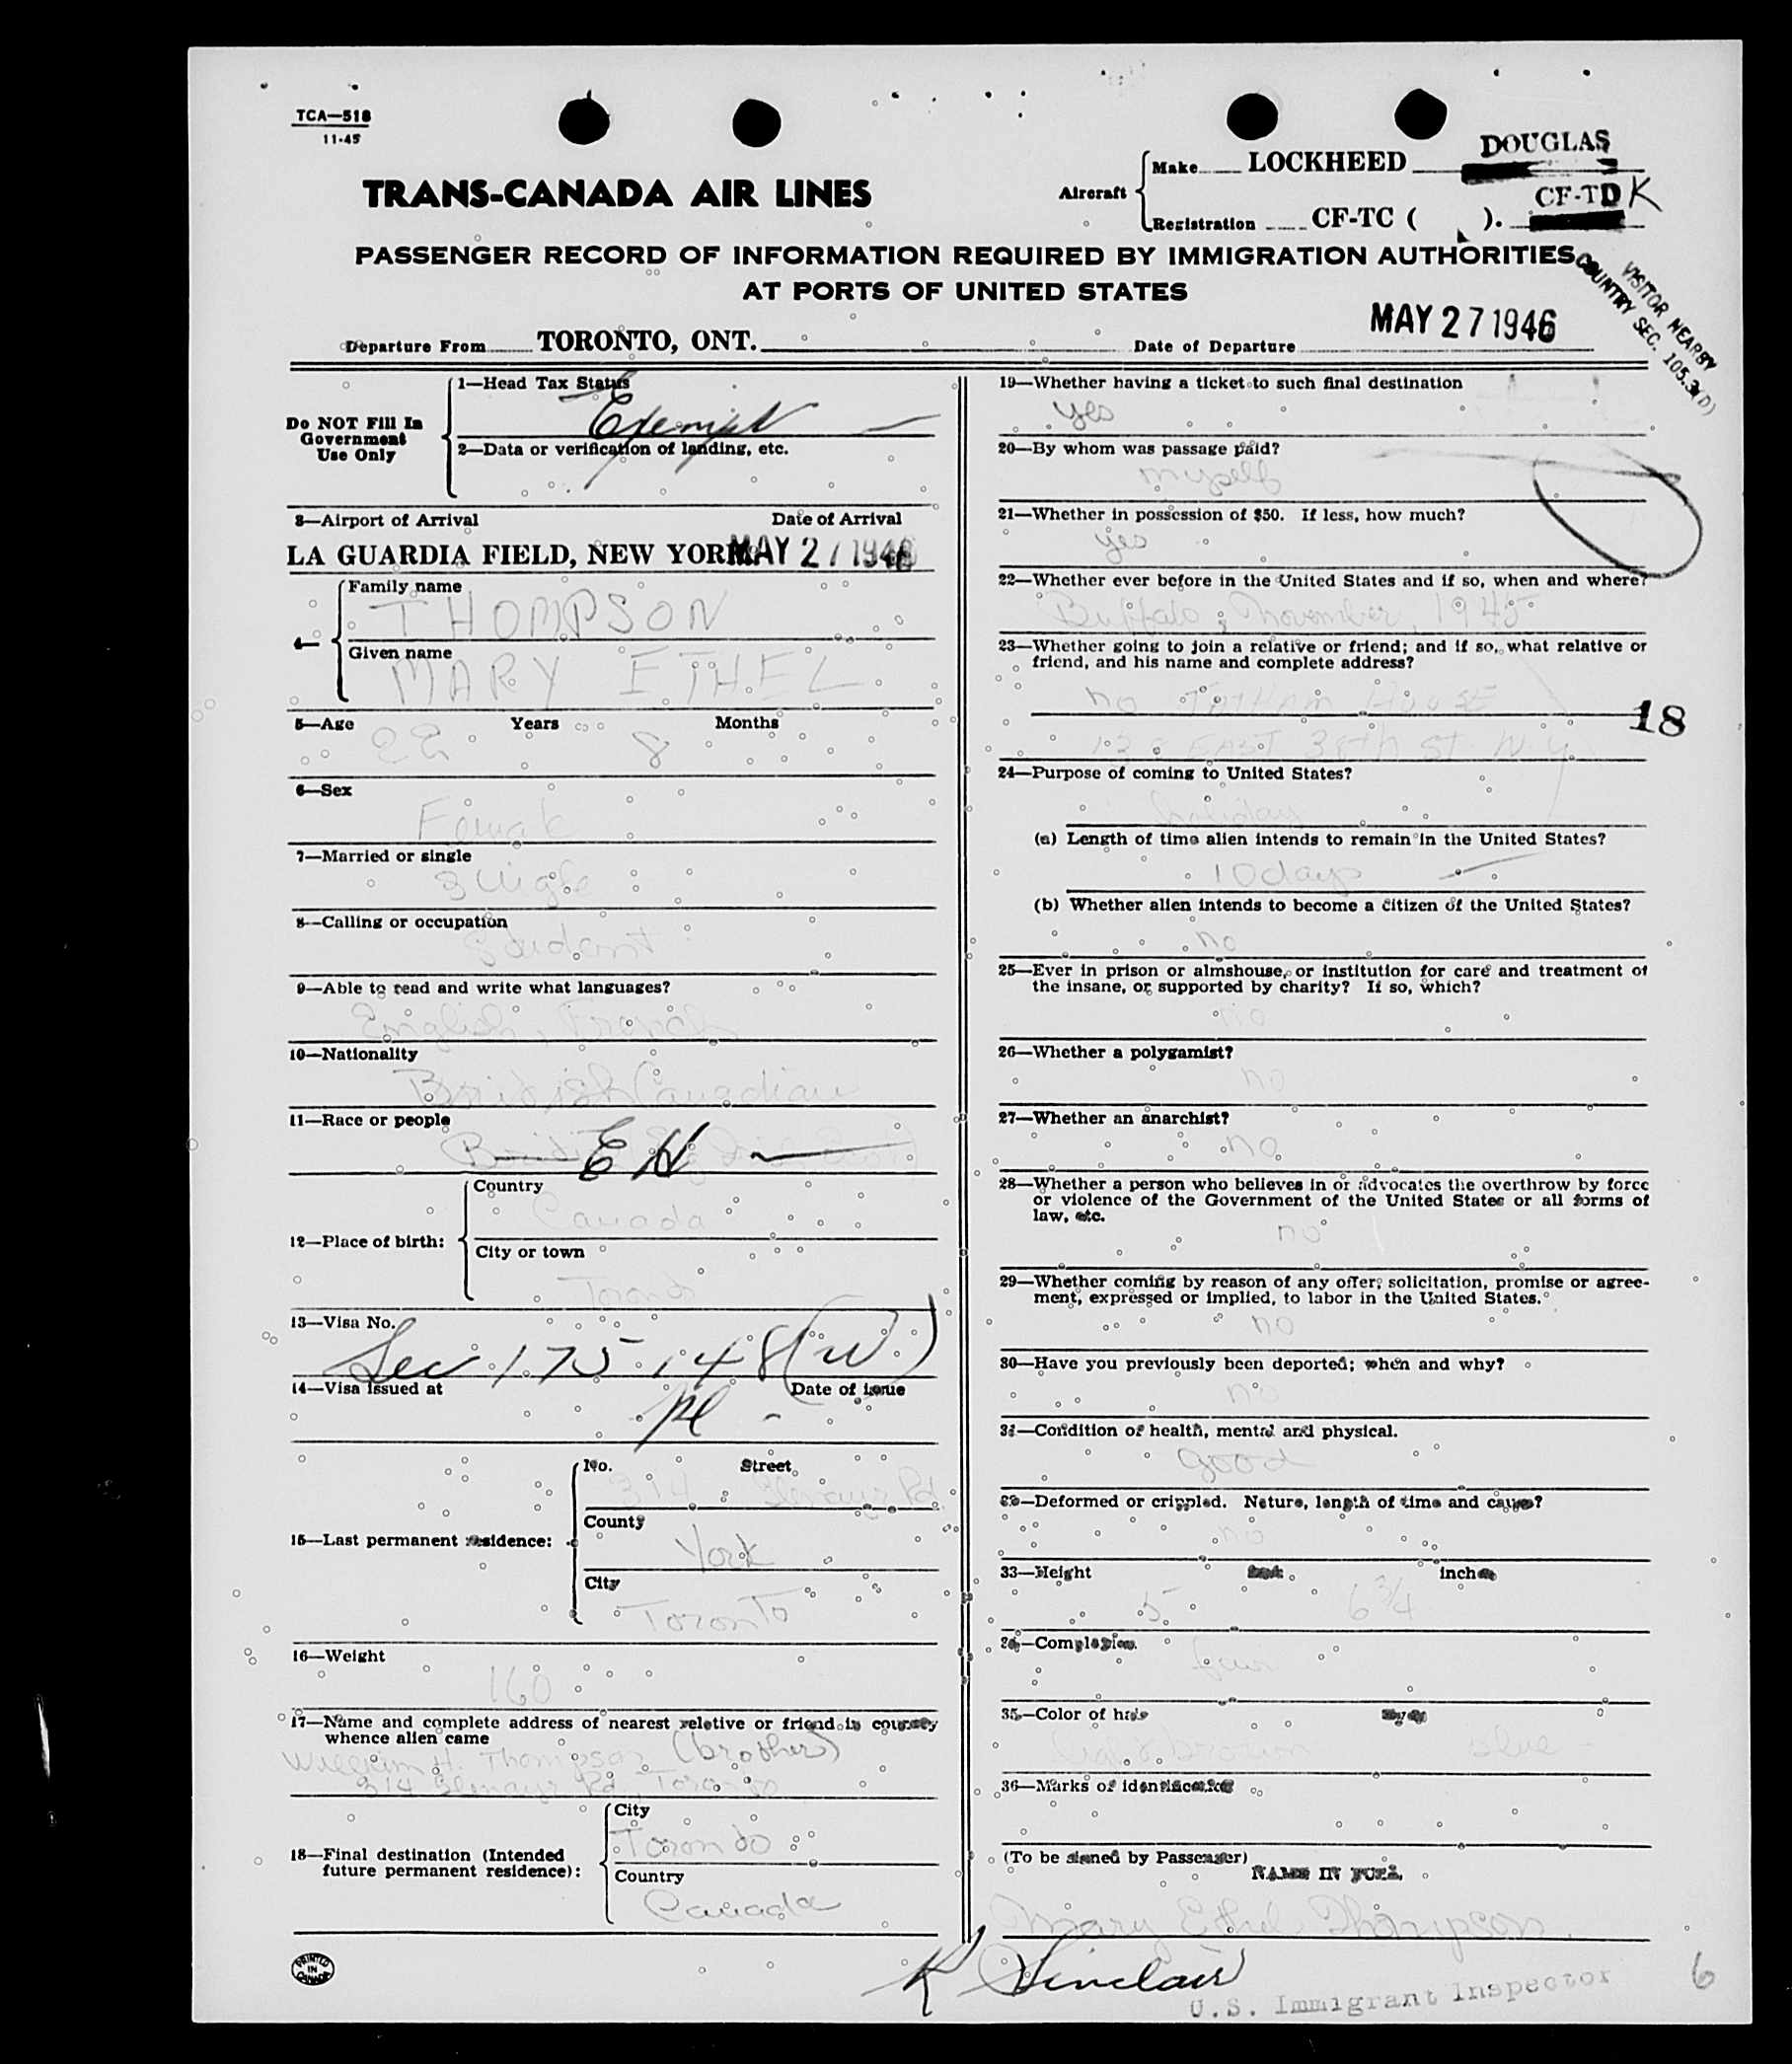 TCA—518
11-45
TRANS-CANADA AIR LINES
Aircraft
Make LOCKHEED DOUGLAS
Registration CF-TC ( ). CF-TD K
PASSENGER RECORD OF INFORMATION REQUIRED BY IMMIGRATION AUTHORITIES
AT PORTS OF UNITED STATES
VISITOR NEARBY
COUNTRY SEC. 105.3(D)
Departure From TORONTO, ONT. Date of Departure MAY 27 1946
Do NOT Fill In
Government
Use Only
1—Head Tax Status
Exempt
2—Data or verification of landing, etc.
3—Airport of Arrival Date of Arrival
LA GUARDIA FIELD, NEW YORK MAY 27 1946
4—
Family name
THOMPSON
Given name
MARY ETHEL
5—Age Years Months
22 8
6—Sex
Female
7—Married or single
Single
8—Calling or occupation
Student
9—Able to read and write what languages?
English, French
10—Nationality
British Canadian
11—Race or people
E H
12—Place of birth:
Country
Canada
City or town
Toronto
13—Visa No.
Sec 175.148(W)
14—Visa issued at Date of issue
15—Last permanent residence:
No. Street
314 Rd
County
York
City
Toronto
16—Weight
160
17—Name and complete address of nearest relative or friend in country
whence alien came
William H. Thompson (brother)
314 Rd Toronto
18—Final destination (Intended
future permanent residence):
City
Toronto
Country
Canada
PRINTED
IN
CANADA
19—Whether having a ticket to such final destination
yes
20—By whom was passage paid?
myself
21—Whether in possession of $50. If less, how much?
yes
22—Whether ever before in the United States and if so, when and where?
Buffalo, November, 1945
23—Whether going to join a relative or friend; and if so, what relative or
friend, and his name and complete address?
no HOUSE
18
EAST 38th ST. N.Y.
24—Purpose of coming to United States?
holiday
(a) Length of time alien intends to remain in the United States?
10 days
(b) Whether alien intends to become a citizen of the United States?
no
25—Ever in prison or almshouse, or institution for care and treatment of
the insane, or supported by charity? If so, which?
no
26—Whether a polygamist?
no
27—Whether an anarchist?
no
28—Whether a person who believes in or advocates the overthrow by force
or violence of the Government of the United States or all forms of
law, etc.
no
29—Whether coming by reason of any offer, solicitation, promise or agree-
ment, expressed or implied, to labor in the United States.
no
30—Have you previously been deported; when and why?
no
31—Condition of health, mental and physical.
good
32—Deformed or crippled. Nature, length of time and cause?
no
33—Height feet inches
5 6 3/4
34—Complexion.
fair
35—Color of hair eyes
light brown blue
36—Marks of identification
(To be signed by Passenger)
NAME IN FULL
Mary Ethel Thompson
K Sinclair
U.S. Immigrant Inspector
6